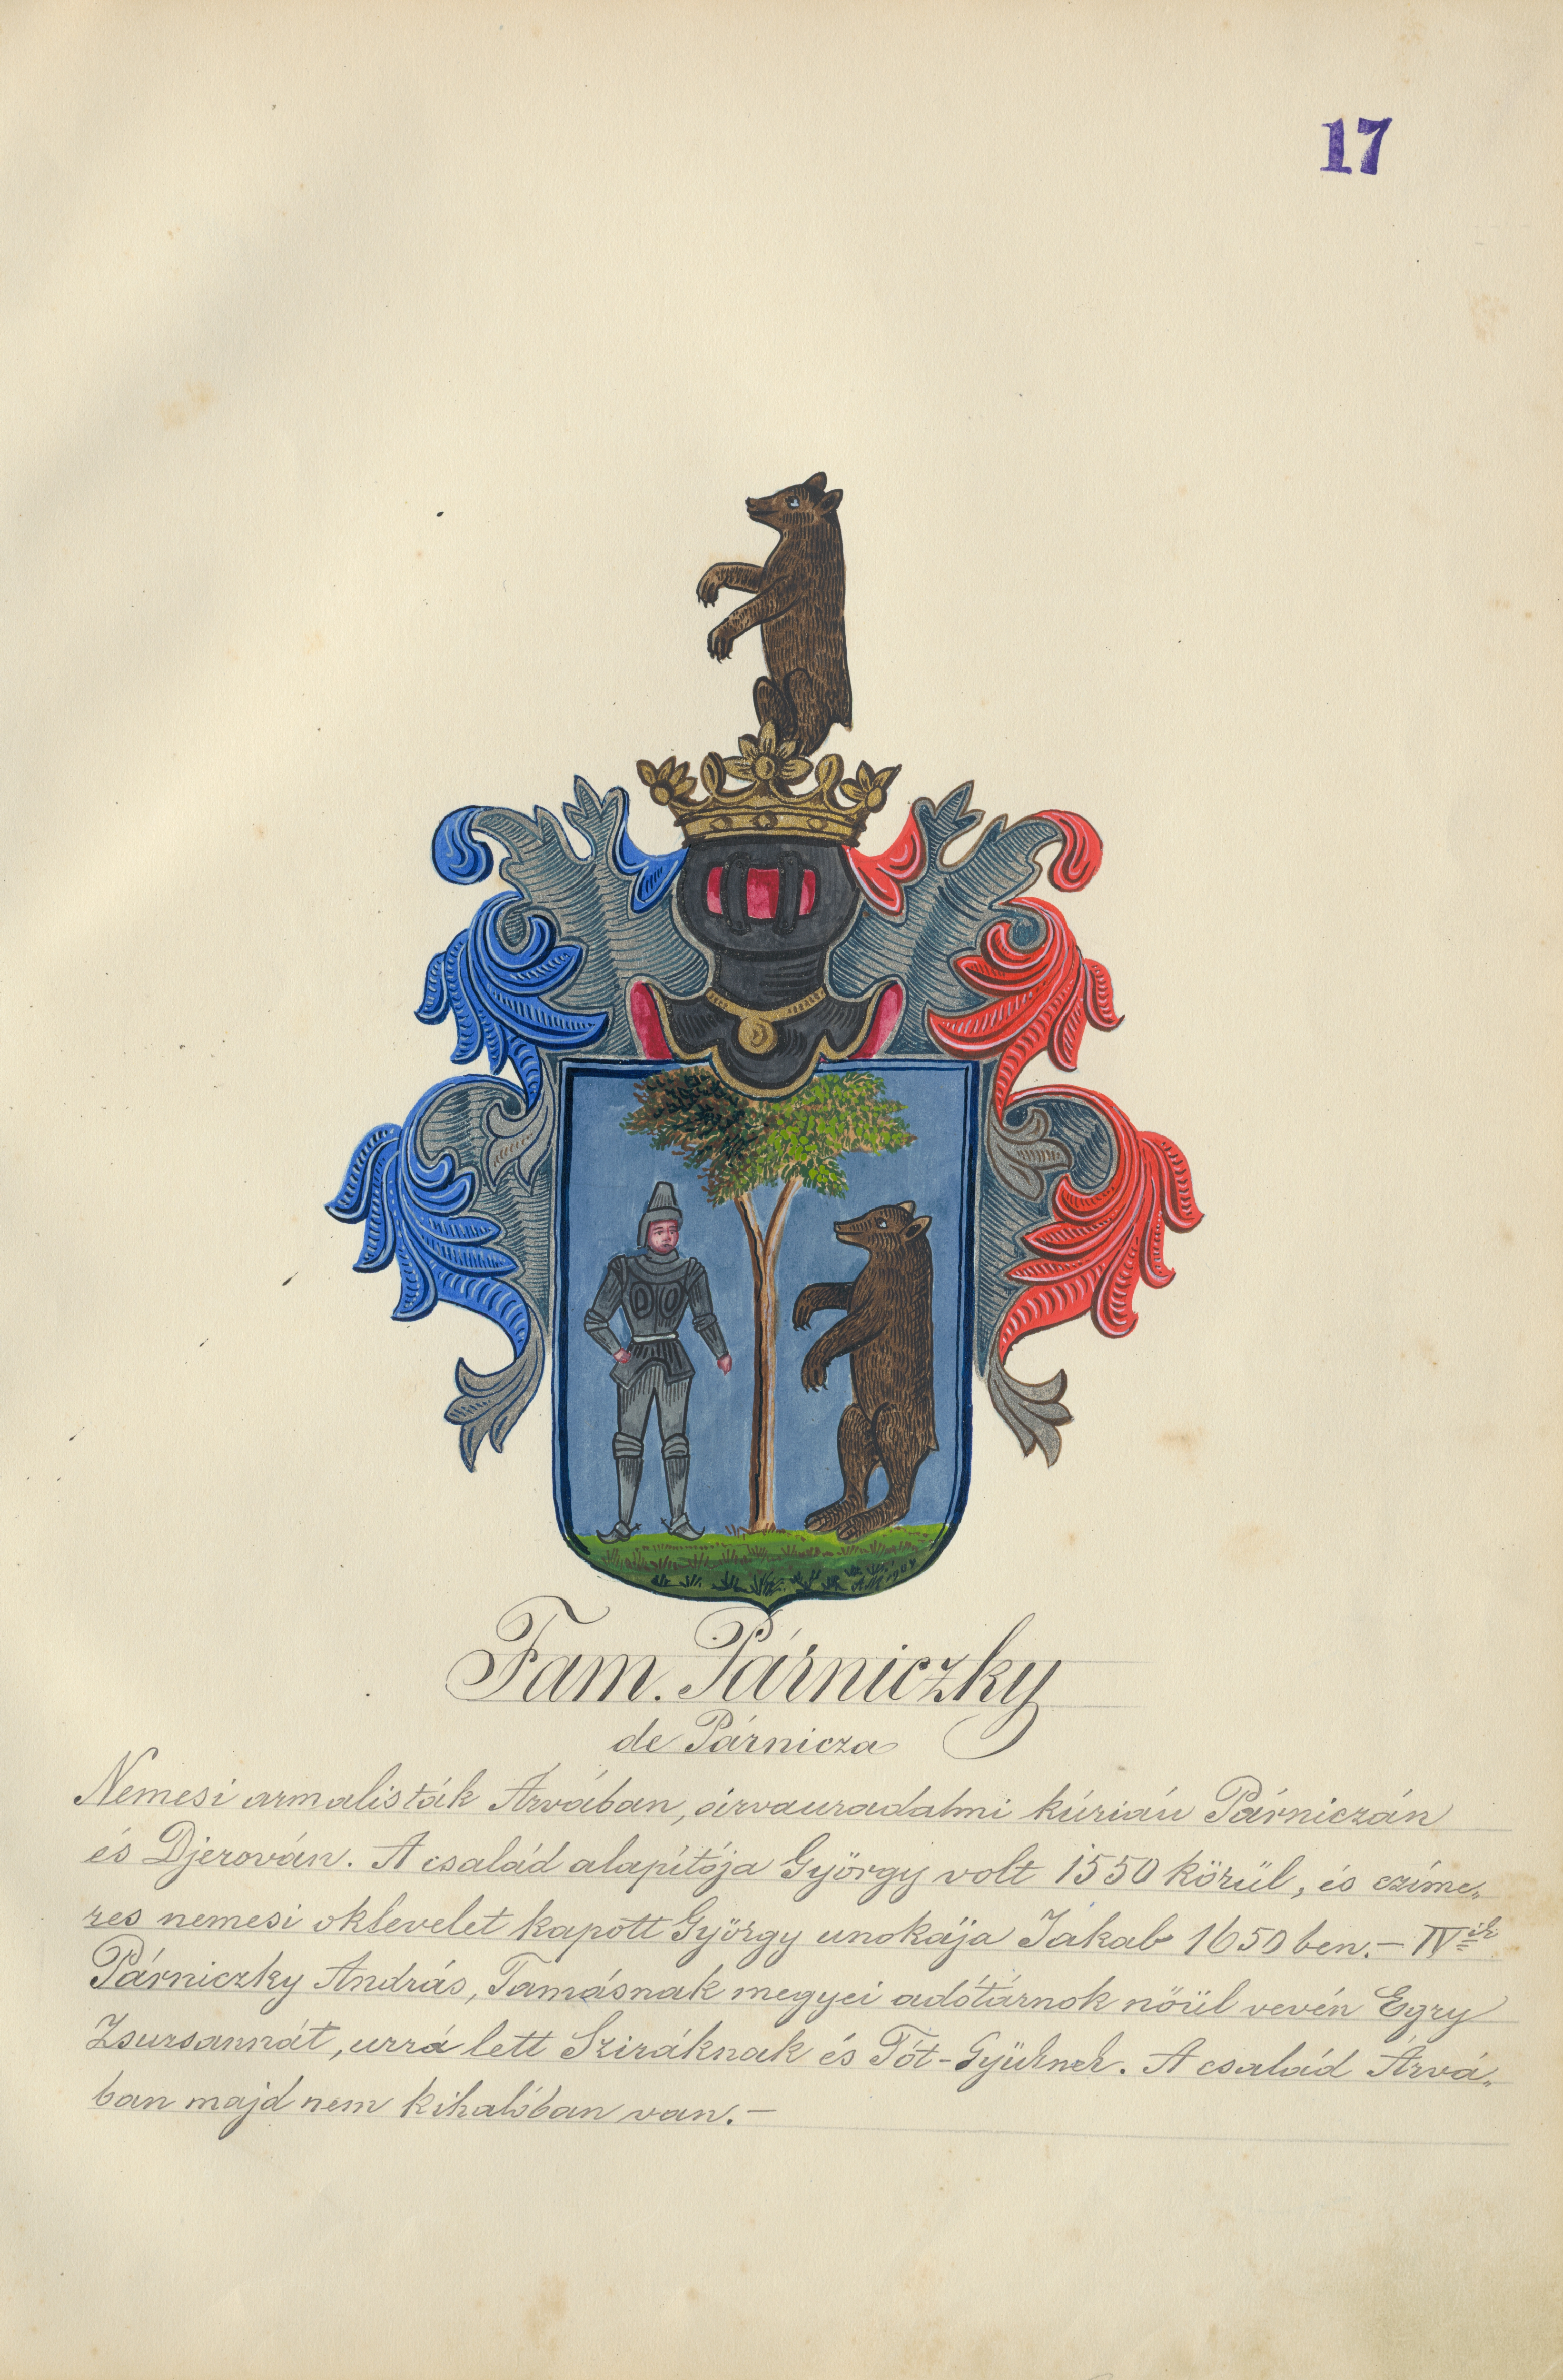 17
AM 1904
Fam. Párniczky
de Párnicza
Nemesi armalisták Árvában, árvauradalmi kúrián Párniczán
és Djerován. A család alapítója György volt 1550 körül, és czíme„
res nemesi oklevelet kapott György unokája Jakab 1650 ben.– IV ik
Párniczky András, Tamásnak megyei adótárnok nőül vevén Egry
Zsursannát, urrá lett Sziráknak és Tót-Győrknek. A család Árvá„
ban majd nem kihalóban van.–